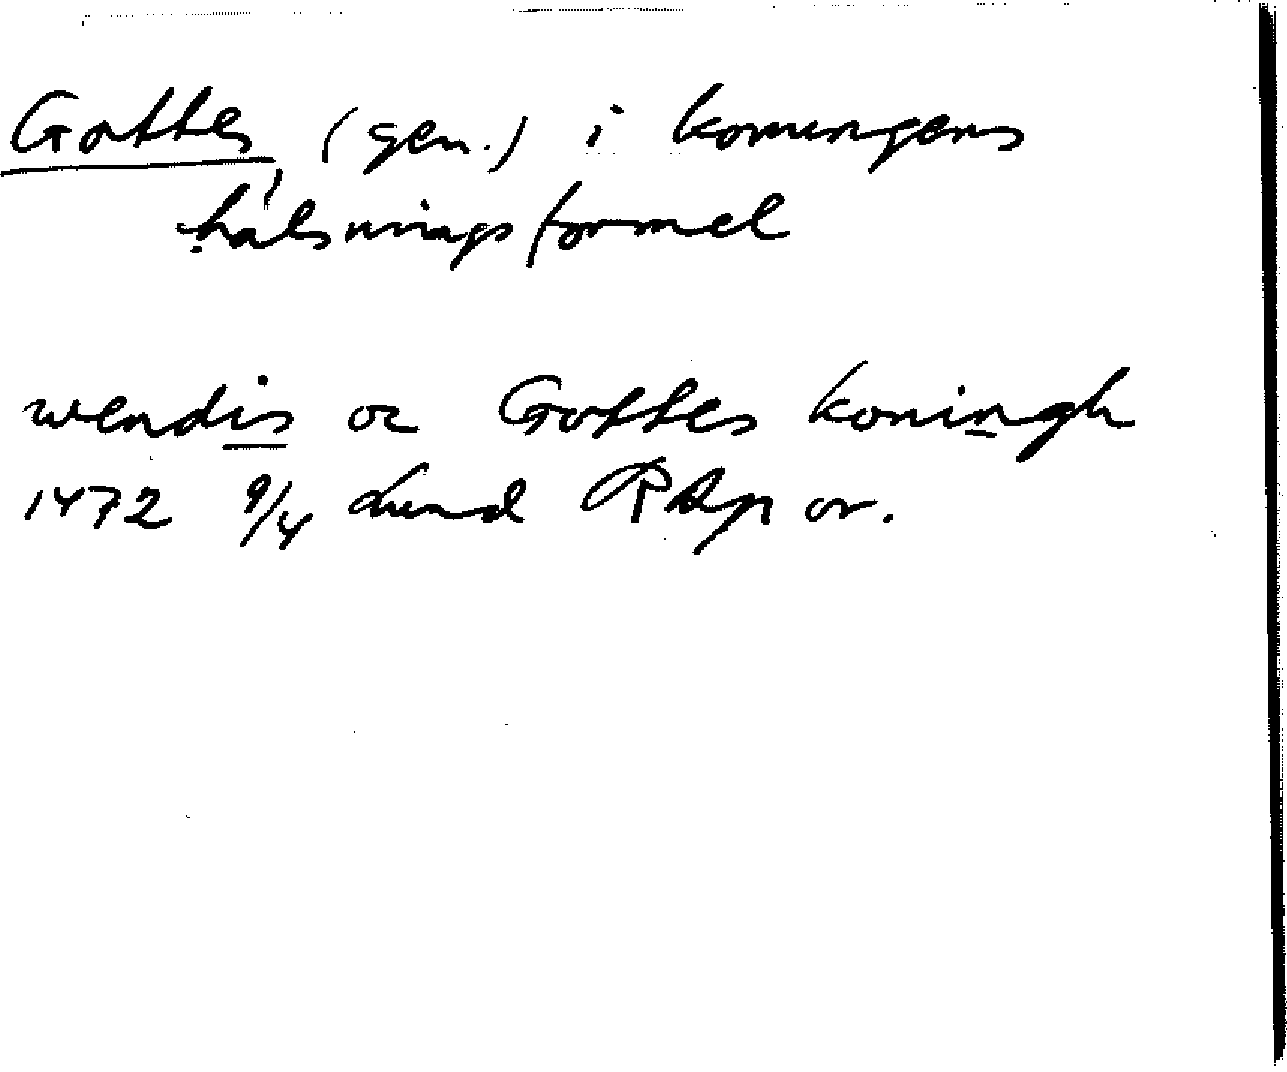 Gottes (gen.) i konungens
hälsningsformel
wendis oc Gottes koningh
1472 9/4 Lund RAp or.